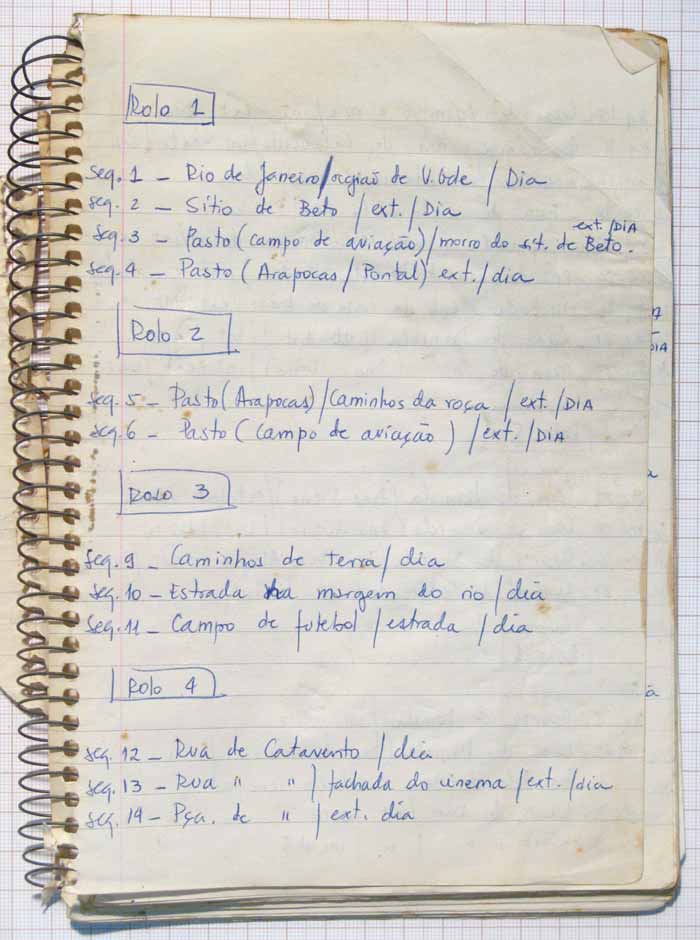 Rolo 1
Seq. 1 – Rio de Janeiro / região de V. Gde / Dia
Seq. 2 – Sítio de Beto / ext. / Dia
ext. / DIA
Seq. 3 – Pasto (campo de aviação) / morro do sít. de Beto.
Seq. 4 – Pasto (Arapocas / Pontal) ext. / dia
Rolo 2
Seq. 5 – Pasto (Arapocas) / Caminhos da roça / ext. / DIA
Seq. 6 – Pasto (campo de aviação) / ext. / DIA
Rolo 3
Seq. 9 – Caminhos de terra / dia
Seq. 10 – Estrada na margem do rio / dia
Seq. 11 – Campo de futebol / estrada / dia
Rolo 4
Seq. 12 – Rua de Catavento / dia
Seq. 13 – Rua " " / fachada do cinema / ext. / dia
Seq. 14 – Pça. de " / ext. dia